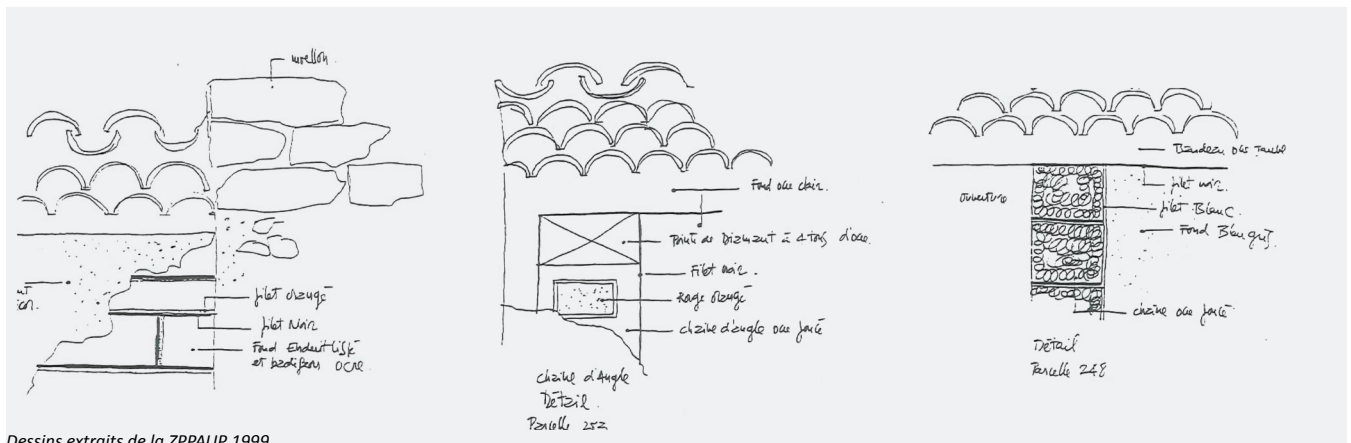 moellon
filet orangé
filet Noir
Fond Enduit lissé
et badigeons OCRE.
Fond ocre clair.
Pointe de Diamant à 4 tons d'ocre.
Filet noir.
orangé
chaîne d'angle ocre foncé
chaîne d'Angle
Détail.
Parcelle 252
Bandeau ocre
ouverture
filet noir.
filet Blanc.
Fond Bleu gris.
chaîne ocre foncé
Détail
Parcelle 248
Dessins extraits de la ZPPAUP 1999